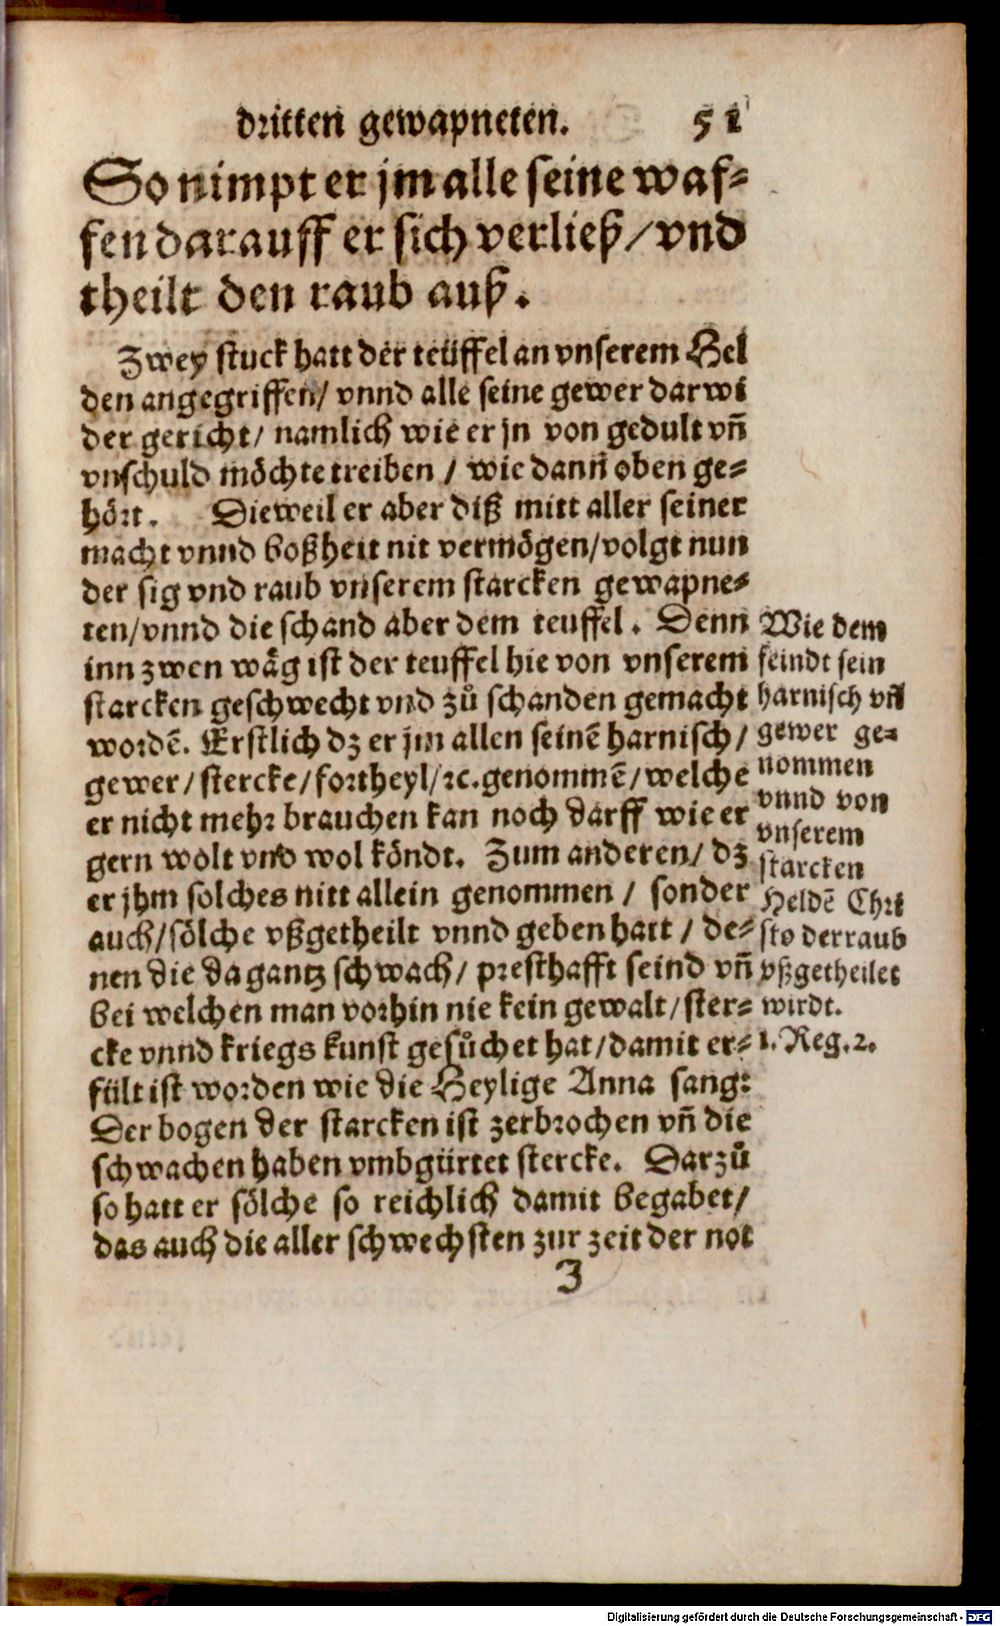 dritten gewapneten. 51
So nimpt er jm alle seine waf-
fen darauff er sich verließ/vnd
theilt den raub auß.
Zwey stuck hatt der teüffel an vnserem Hel
den angegriffen/ vnnd alle seine gewer darwi
der gericht/ namlich wie er jn von gedult vñ
vnschuld möchte treiben / wie dann oben ge-
hört. Dieweil er aber diß mitt aller seiner
macht vnnd boßheit nit vermögen/volgt nun
der sig vnd raub vnserem starcken gewapne-
ten/vnnd die schand aber dem teuffel. Denn
inn zwen wäg ist der teuffel hie von vnserem
starcken geschwecht vnd zů schanden gemacht
wordẽ. Erstlich dz er jm allen seinẽ harnisch/
gewer/stercke/fortheyl/ꝛc.genommẽ/welche
er nicht mehr brauchen kan noch darff wie er
gern wolt vnd wol köndt. Zum anderen/ dz
er jhm solches nitt allein genommen / sonder
auch/sölche vßgetheilt vnnd geben hatt / de-
nen die da gantz schwach/ presthafft seind vñ
bei welchen man vorhin nie kein gewalt/ster-
cke vnnd kriegs kunst gesůchet hat/damit er-
fült ist worden wie die Heylige Anna sang:
Der bogen der starcken ist zerbrochen vñ die
schwachen haben vmbgürtet stercke. Darzů
so hatt er sölche so reichlich damit begabet/
das auch die aller schwechsten zur zeit der not
J
Wie dem
feindt sein
harnisch vñ
gewer ge-
nommen
vnnd von
vnserem
starcken
Heldẽ Chri
sto der raub
vßgetheilet
wirdt.
1. Reg.2.
Digitalisierung gefördert durch die Deutsche Forschungsgemeinschaft - DFG